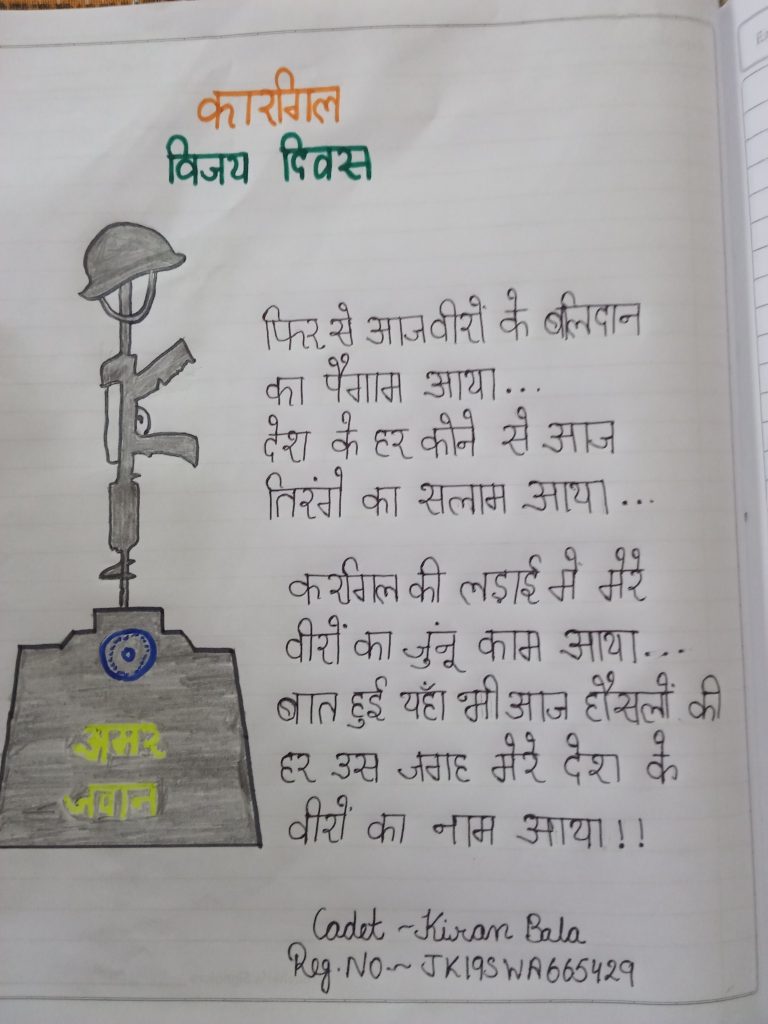 कारगिल
विजय दिवस
फिर से आज वीरों के बलिदान
का पैगाम आया...
देश के हर कोने से आज
तिरंगे का सलाम आया...
कर्रागल की लड़ाई में मेरे
वीरों का जुंनू काम आया...
बात हुई यहाँ भी आज हौसलों की
हर उस जगह मेरे देश के
वीरों का नाम आया!!
अमर
जवान
Cadet ~ Kiran Bala
Reg. No ~ JK19SWA665429